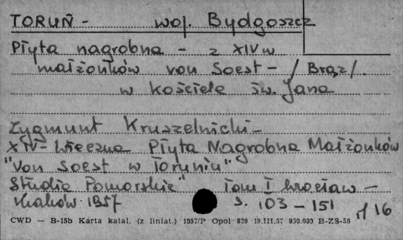 TORUŃ - woj. Bydgoszcz
Płyta nagrobna - z XIV w
małżonków von Soest - /Brąz/.
w kościele św. Jana
Zygmunt Kruszelnicki -
XIV-wieczna Płyta Nagrobna Małżonków
"Von Soest w Toruniu"
Studia Pomorskie" tom I Wrocław -
Kraków 1957 s. 103 - 151 il 16
CWD - B-15b Karta katal. (z liniat.) 1957/P Opol 820 19.III.57 930.000 B-ZS-56